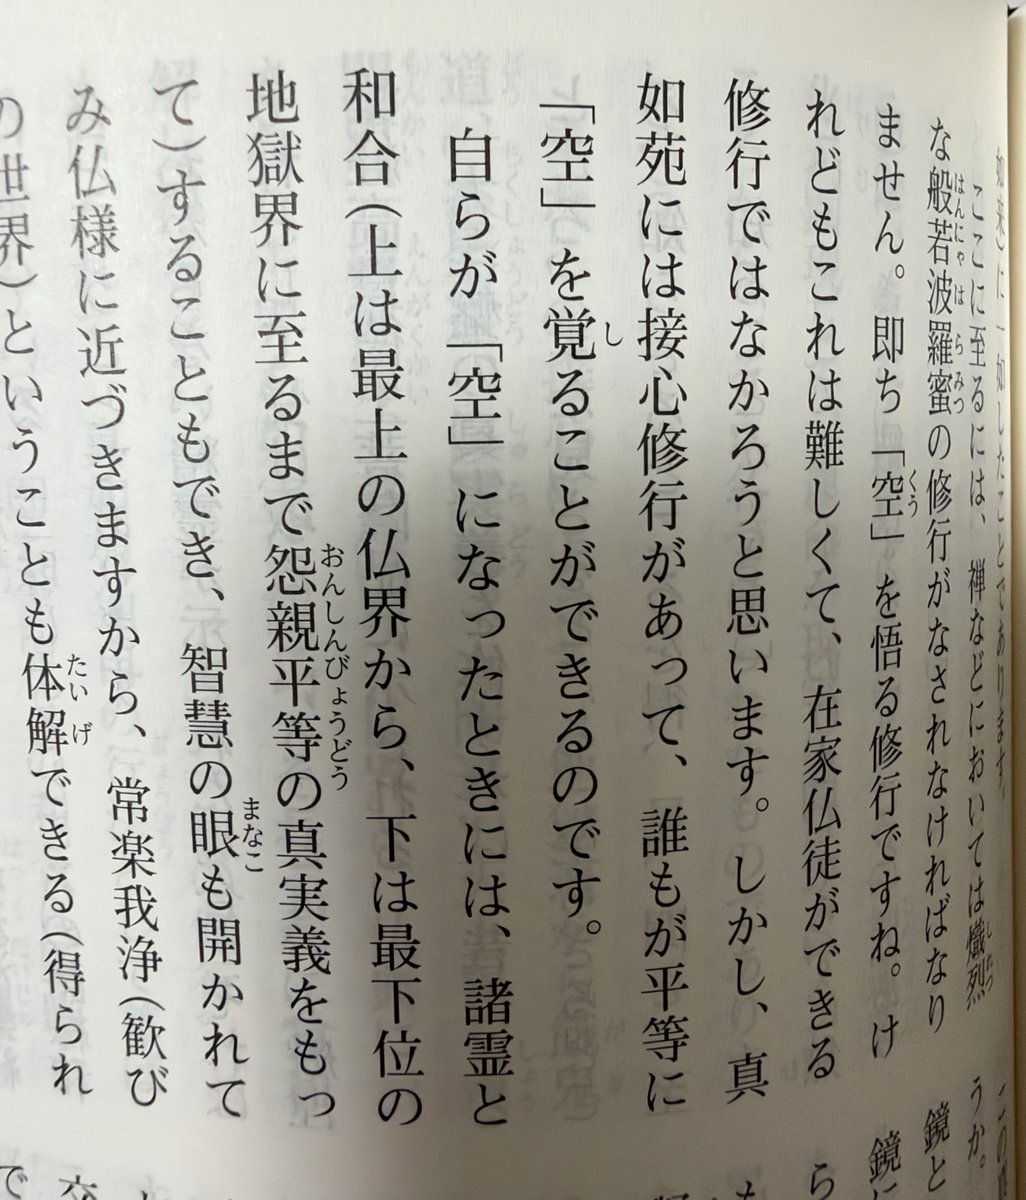 如来)に一如したことであります。
ここに至るには、禅などにおいては熾烈
な般若波羅蜜の修行がなされなければなり
ません。即ち「空」を悟る修行ですね。け
れどもこれは難しくて、在家仏徒ができる
修行ではなかろうと思います。しかし、真
如苑には接心修行があって、誰もが平等に
「空」を覚ることができるのです。
自らが「空」になったときには、諸霊と
和合(上は最上の仏界から、下は最下位の
地獄界に至るまで怨親平等の真実義をもっ
て)することもでき、智慧の眼も開かれて
み仏様に近づきますから、常楽我浄(歓び
の世界)ということも体解できる(得られ
うか。
鏡と